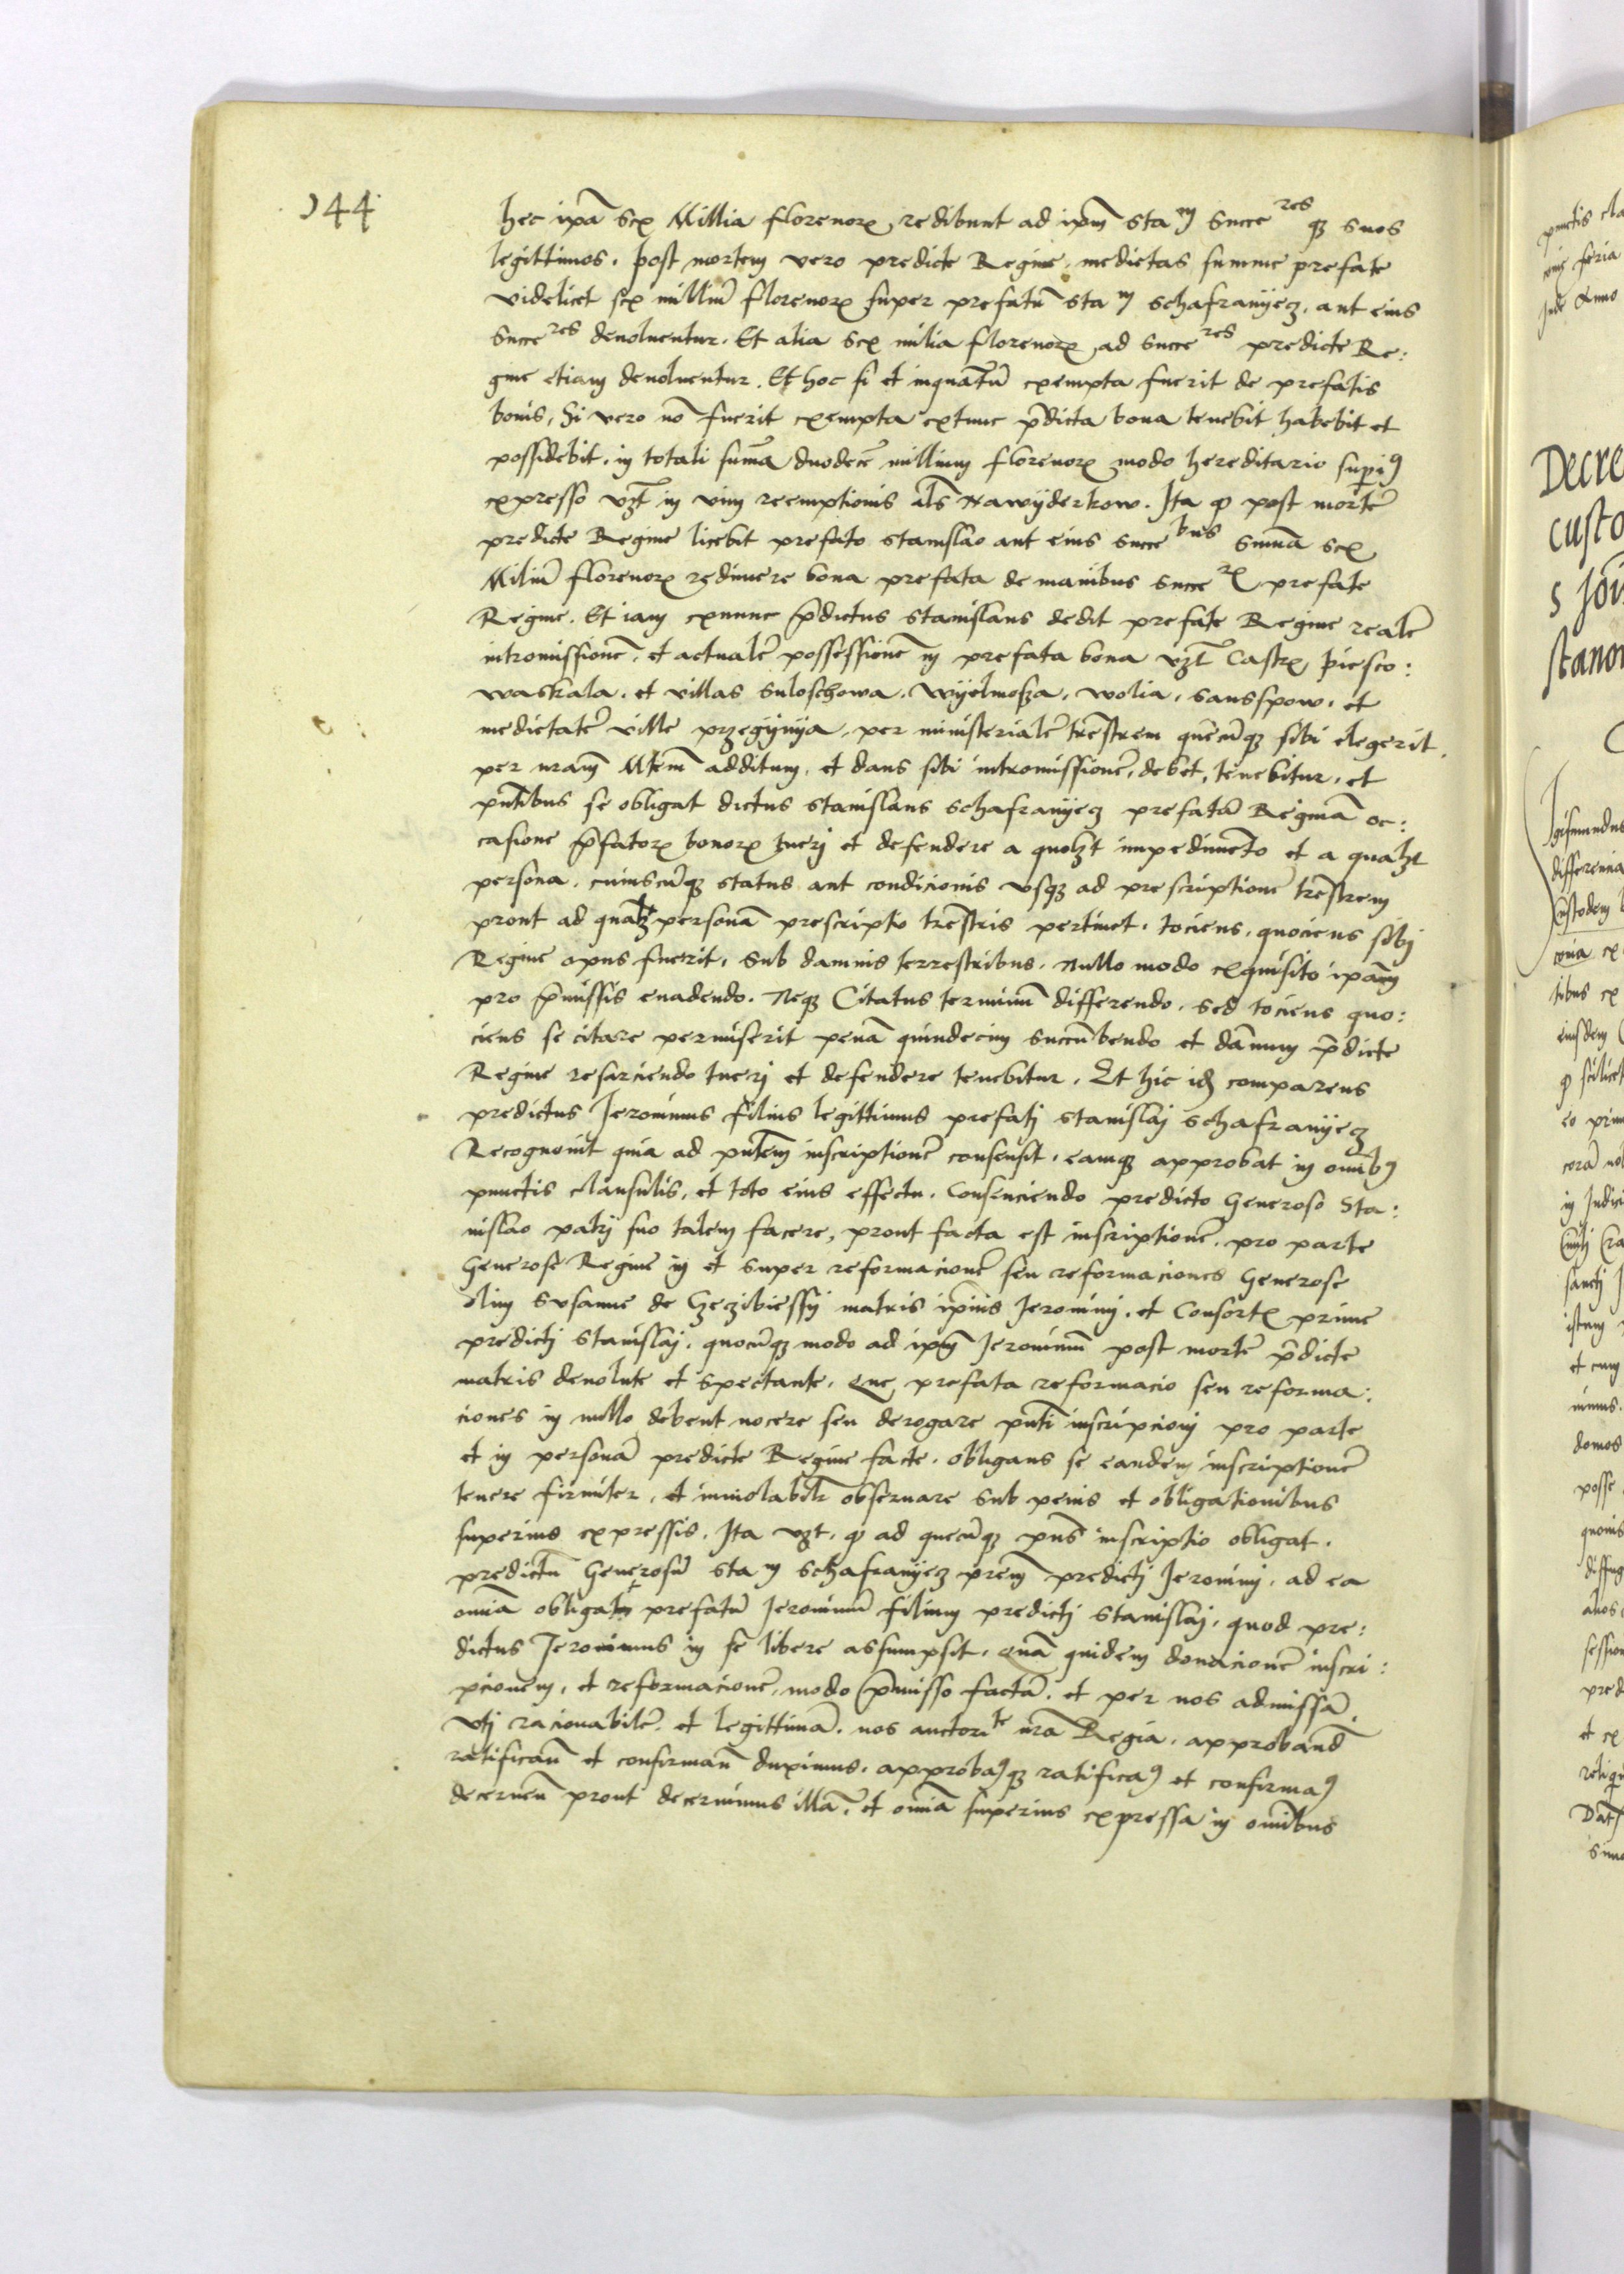 144
hec ip̄a sex Millia florenorꝝ redibunt ad ip̄m Staᵐ Succeʳᵉˢ qꝫ suos
legittimos. post mortem vero predicte Regine, medietas summe prefate
videlicet sex milliū florenorꝝ super prefatū Staᵐ Schafranijecz, aut eius
Succeʳᵉˢ devoluentur. Et alia sex milia florenorꝝ ad Succeʳᵉˢ predicte Re:
gine etiam devoluentur. Et hoc si et inquātū exempta fuerit de prefatis
bonis, Si vero nō fuerit exempta extunc p̄dicta bona tenebit habebit et
possidebit, in totali sum̄a duodecī millium florenorꝝ modo hereditario supiꝰ
expresso vꝫt in vim reemptionis als̄ Nawijderkow. Ita ꝙ post mortē
predicte Regine licebit prefato Stanislao aut eius Succeᵇᵘˢ Sum̄a sex
Miliū florenorꝝ redimere bona prefata de manibus Succeʳꝝ prefate
Regine. Et iam exnunc p̄dictus Stanislaus dedit prefate Regine realē
intromissionē, et actualē possessionē in prefata bona vꝫt Castrꝝ Piesco:
waskala, et villas Suloschowa, Wijelmosza, Wolia, Sansspow, et
medietatē ville Przegijnija, per ministerialē trēstrem quēcūqꝫ sibi elegerit,
per nram̄ Mtem̄ additum, et dans sibi intromissionē, debet, tenebitur, et
pn̄tibus se obligat dictus Stanislaus Schafranijecz prefatā Reginā oc:
casione p̄fatorꝝ bonorꝝ tuerj et defendere a quolꝫt impedimēto et a qualꝫt
persona, cuiuscūqꝫ status aut condicionis vsqꝫ ad prescriptionē trēstrem
prout ad qualꝫt personā prescriptio trēstris pertinet, tociens, quociens sibj
Regine opus fuerit, Sub damnis terrestribus, Nullo modo exquisito ipām
pro p̄missis euadendo. Neqꝫ Citatus terminū differendo, sed tociens quo:
ciens se citare permiserit penā quindecim succūbendo et dām̄num p̄dicte
Regine resarciendo tuerj et defendere tenebitur. Et hic idꝫ comparens
predictus Jeronimus filius legittimus prefatj Stanislaj Schafranijecz
Recognouit quia ad pn̄tem inscriptionē consensit, eamqꝫ approbat in om̄ibꝰ
punctis clausulis, et toto eius effectu. Consenciendo predicto Generoso Sta:
nislao patrj suo talem facere, prout facta est inscriptionē, pro parte
Generose Regine in et super reformacionē seu reformaciones Generose
olim Susanne de matris ip̄ius Jeronimj, et Consortꝭ prime
predictj Stanislaj, quocūqꝫ modo ad ip̄m Jeronimū post mortē p̄dicte
matris devolute et spectante, Que, prefata reformacio seu reforma:
ciones in nullo debent nocere seu derogare pn̄ti inscripcionj pro parte
et in personā predicte Regine facte. obligans se eandem inscriptionē
tenere firmiter, et inuiolabilr̄ obseruare sub penis et obligationibus
superius expressis. Ita vꝫt, ꝙ ad quecūqꝫ pn̄s inscriptio obligat,
predictū Generosū Staᵐ Schafranijecz prēm predictj Jeronimj, ad ea
om̄ia obligat prefatū Jeronimū filium predictj Stanislaj, quod pre:
dictus Jeronimus in se libere assumpsit, quā quidem donacionē inscri:
pcionem, et reformacionē, modo p̄misso factā, et per nos admissā,
Vtj racionabilē, et legittimā, nos auctoriᵗᵉ nrā Regia, approband̄
ratifican̄ et confirman̄ duximus, approbaꝰqꝫ ratificaꝰ et confirmaꝰ
decernen̄ prout decernimus illā, et om̄ia superius expressa in om̄ibus